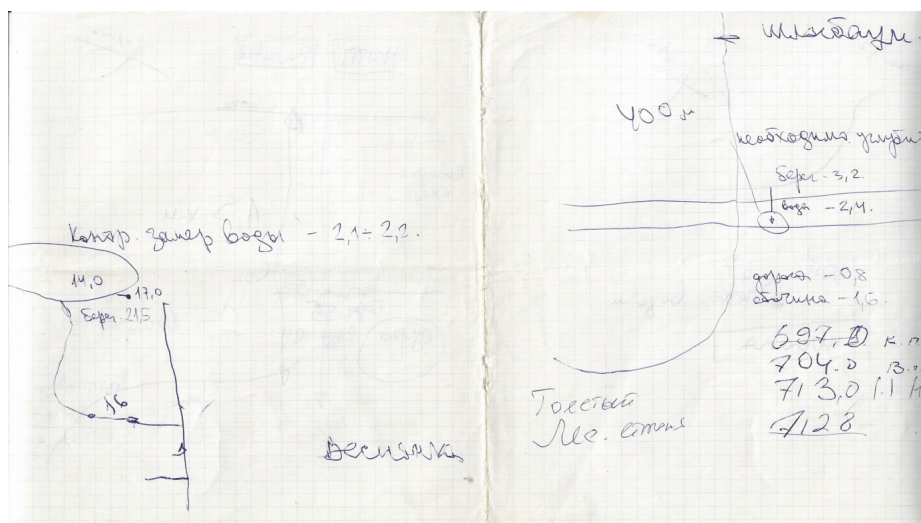 Контр. замер воды - 2,1÷2,2.
14,0
17,0
берег 21,5
16
Веснянка
шлагбаум
400 м
необходимо углуби
берег - 3,2
вода - 2,4.
дорога - 0,8
обочина - 1,6
697,0 к.п
704.0 в.
713,0
7128
Толстый